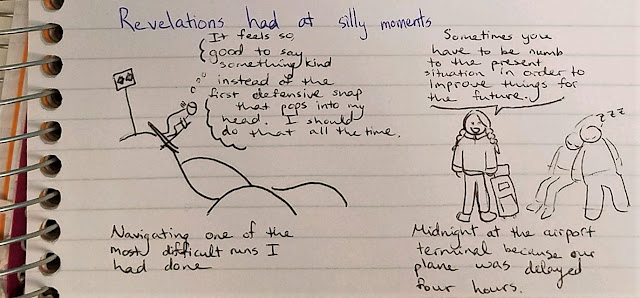 Revelations had at silly moments
It feels so
good to say
something kind
instead of the
first defensive snap
that pops into my
head. I should
do that all the time.
Navigating one of the
most difficult runs I
had done
Sometimes you
have to be numb
to the present
situation in order to
improve things for
the future.
zzz
Midnight at the airport
terminal because our
plane was delayed
four hours.